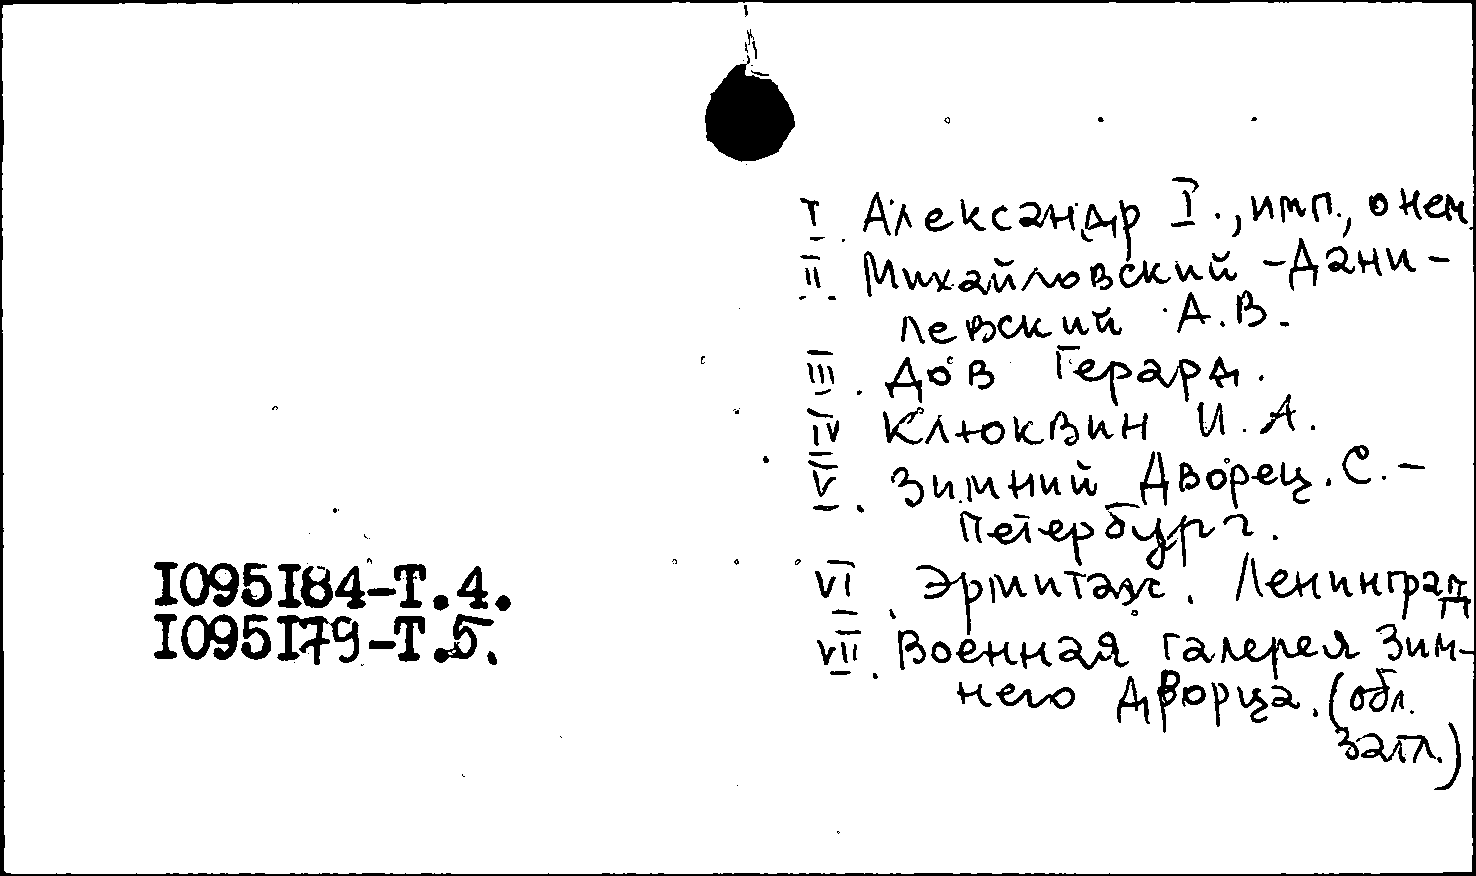 I Александр I., имп., о нем
II. Михайловский-Дани-
левский А.В.
III. Дов Герард.
IV Клюквин И.А.
V. Зимний Дворец. С.-
Петербург.
VI. Эрмитаж. Ленинград
VII. Военная галерея Зим-
него дворца. (обл.
загл.)
I095I84-Т.4.
I095I79-Т.5.